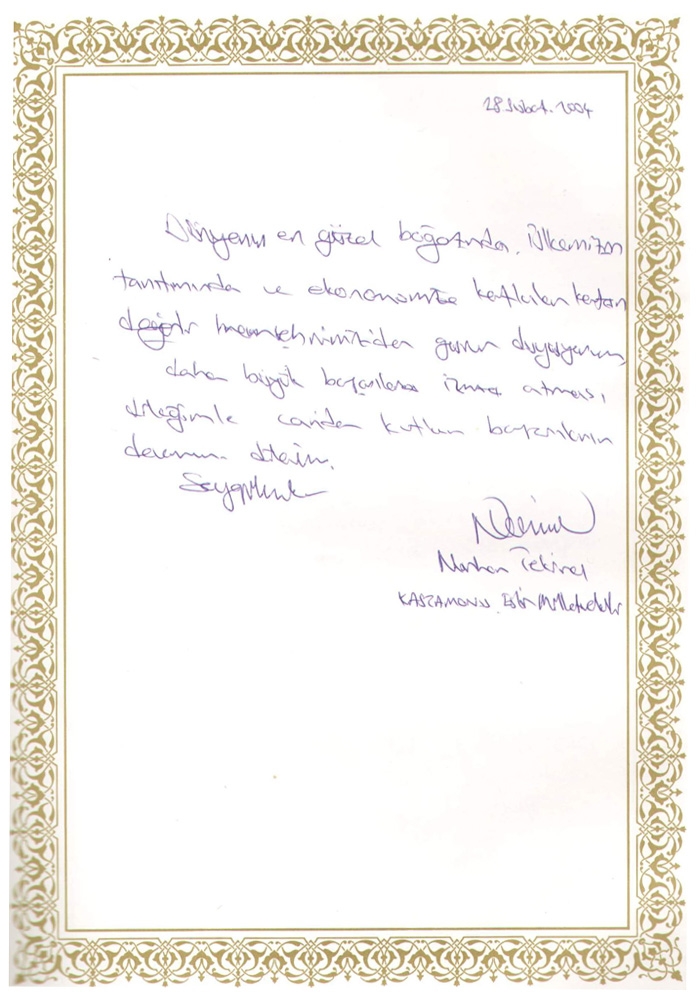 28 Şubat. 2004
Dünyanın en güzel boğazında, ülkemizin
tanıtımında ve ekonomimize katkıları katan
değerli hemşehrimizden gurur duyuyorum,
daha büyük başarılara imza atması,
dileğimle candan kutlar başarılarının
devamını dilerim.
Saygılarımla
Nurhan Tekinel
KASTAMONU Eski Milletvekili